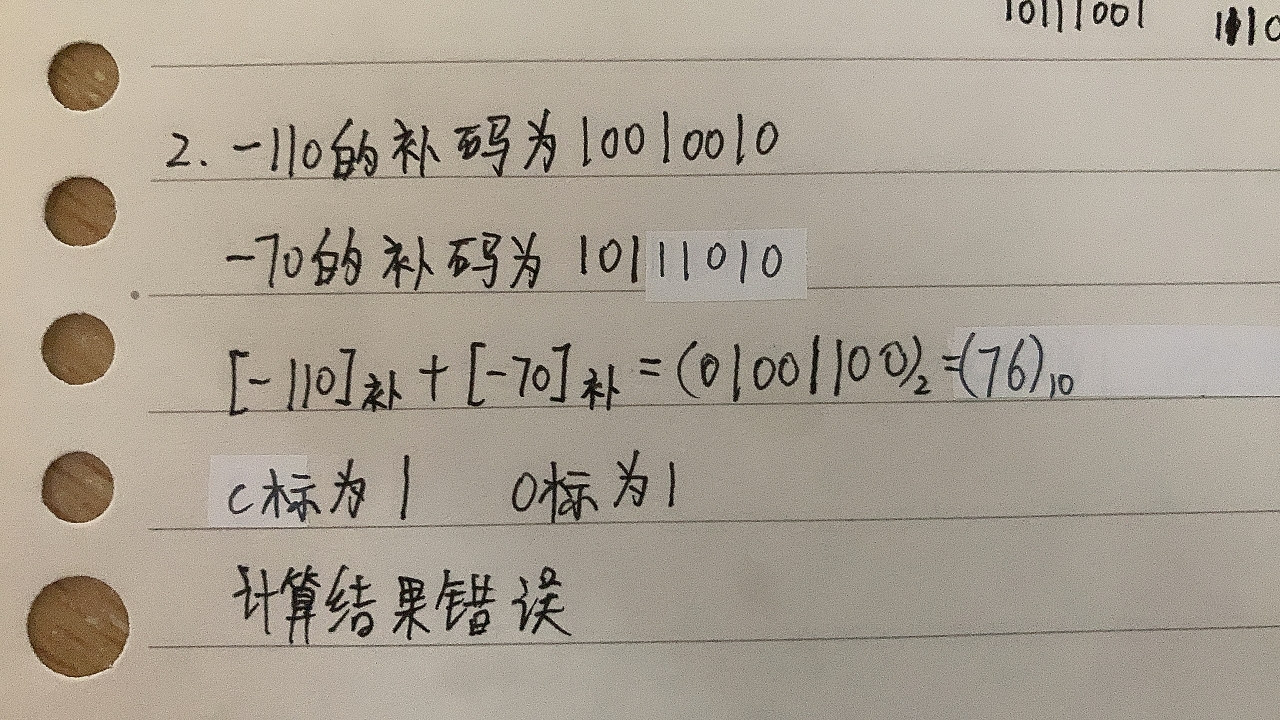 10111001
2. -110的补码为10010010
-70的补码为 10111010
[-110]补 + [-70]补 = (01001100)2=(76)10
C标为1 O标为1
计算结果错误